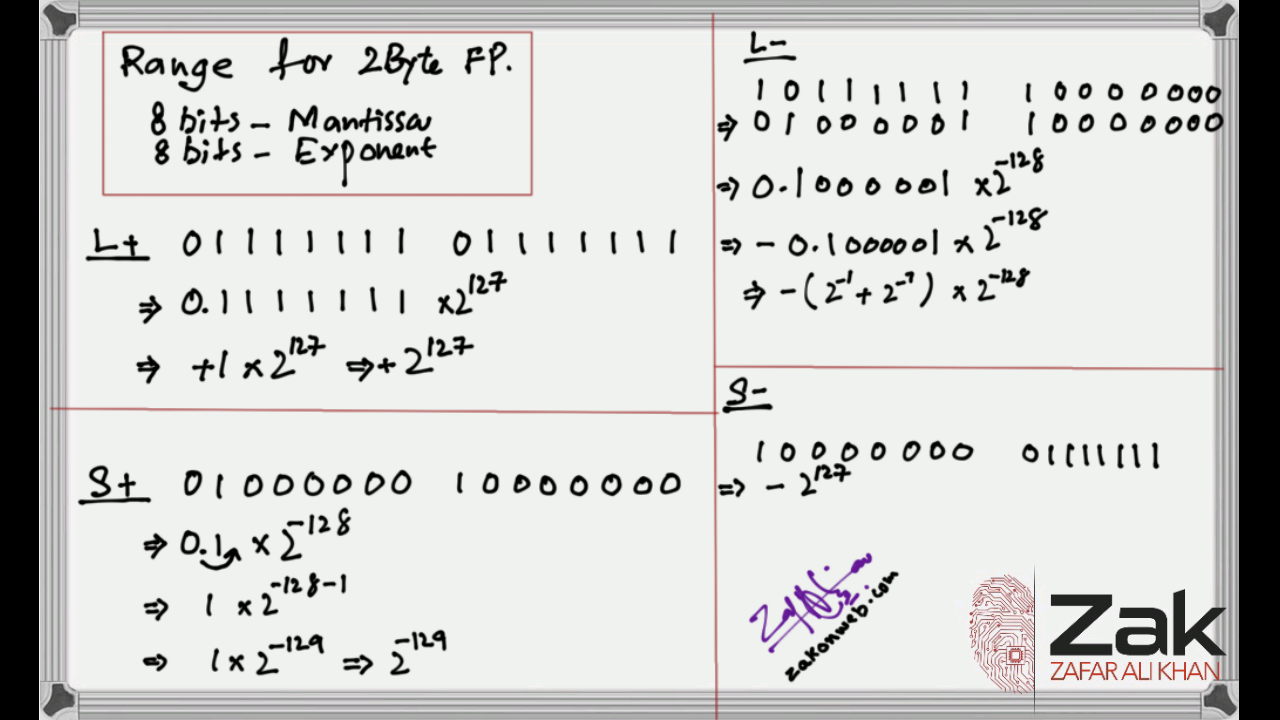 Range for 2Byte FP.
8 bits - Mantissa
8 bits - Exponent
L+ 01111111 01111111
⇒ 0.1111111 ×2^127
⇒ +1 × 2^127 ⇒ + 2^127
S+ 01000000 10000000
⇒ 0.1 × 2^-128
⇒ 1 × 2^-128-1
⇒ 1 × 2^-129 ⇒ 2^-129
L-
10111111 10000000
⇒ 01000001 10000000
⇒ 0.1000001 ×2^-128
⇒ - 0.1000001 × 2^-128
⇒ - (2^-1 + 2^-7) × 2^-128
S-
10000000 01111111
⇒ - 2^127
zakonweb.com
Zak
ZAFAR ALI KHAN